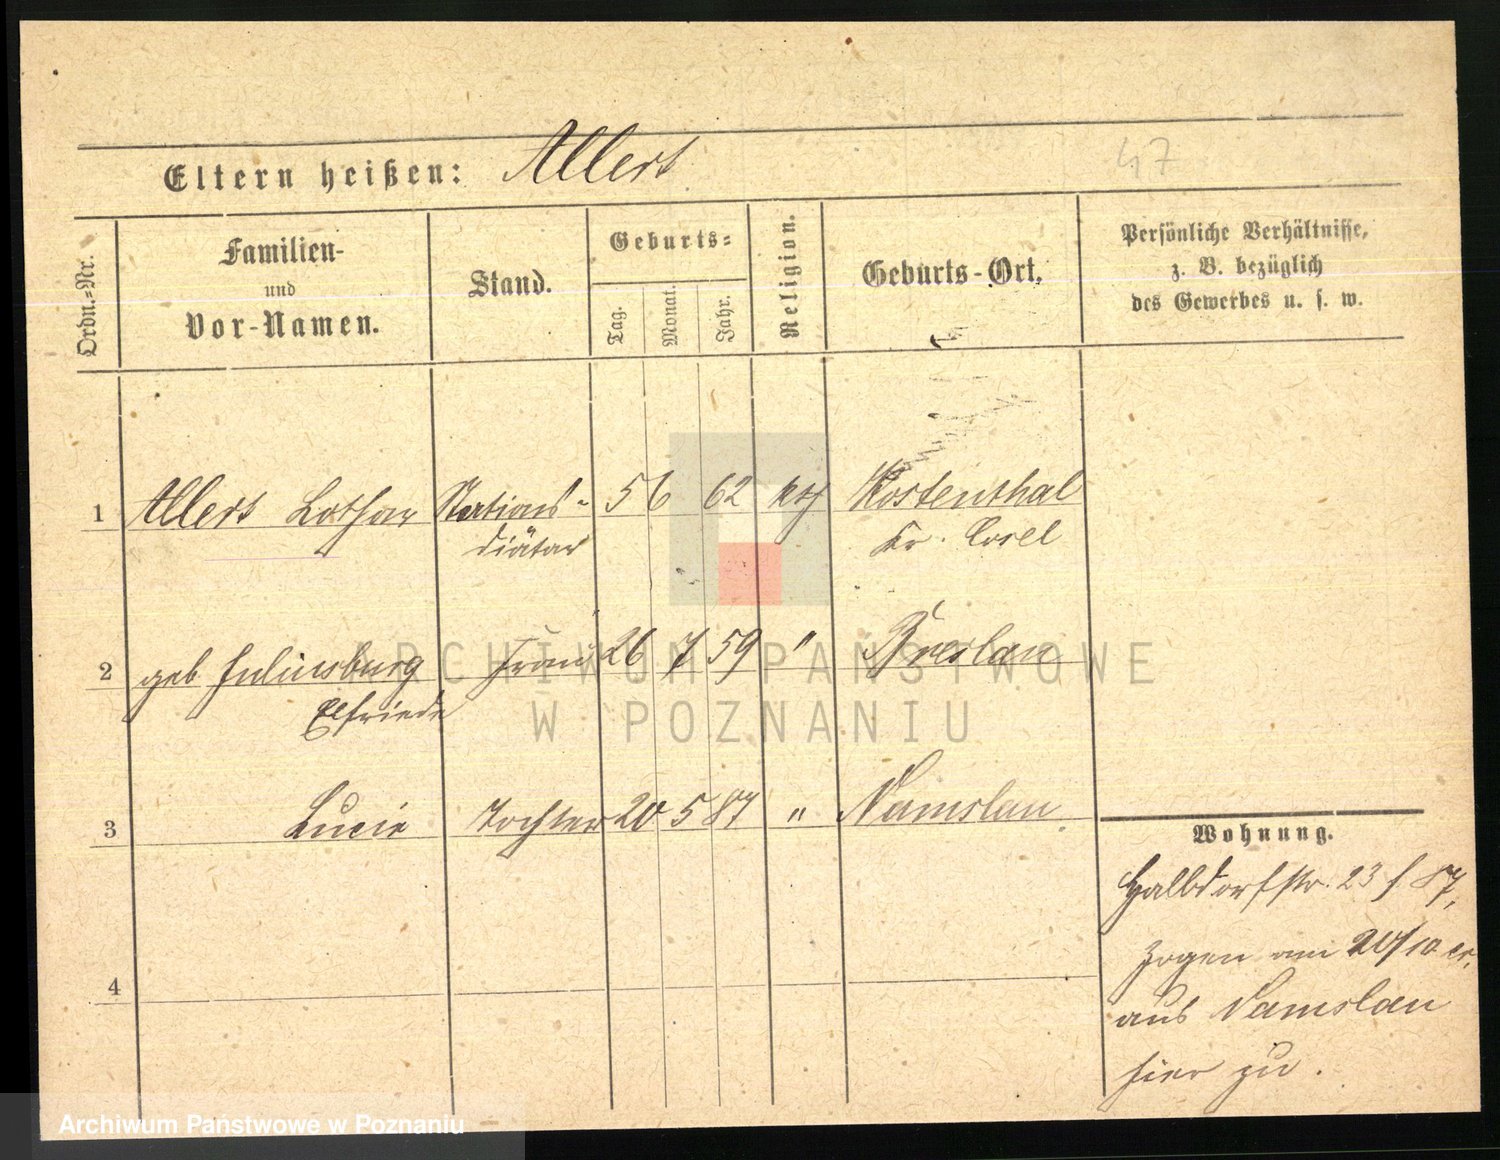 47
Eltern heißen: Allert
Ordn.-Nr.
Familien-
und
Vor-Namen.
Stand.
Geburts-
Tag.
Monat.
Jahr.
Religion.
Geburts-Ort.
Persönliche Verhältnisse,
z. B. bezüglich
des Gewerbes u. s. w.
1 Allert Lothar Stations- 5 6 62 kth Kostenthal
diätar Kr. Cosel
2 geb Juliusburg Frau 26 7 59 " Breslau
Elfriede
3 Lucie Tochter 20 5 87 " Namslau
4
Wohnung.
Halbdorfstr. 23 f 87,
zogen am 20/10 cr.
aus Namslau
hier zu.
ARCHIWUM PAŃSTWOWE
W POZNANIU
Archiwum Państwowe w Poznaniu